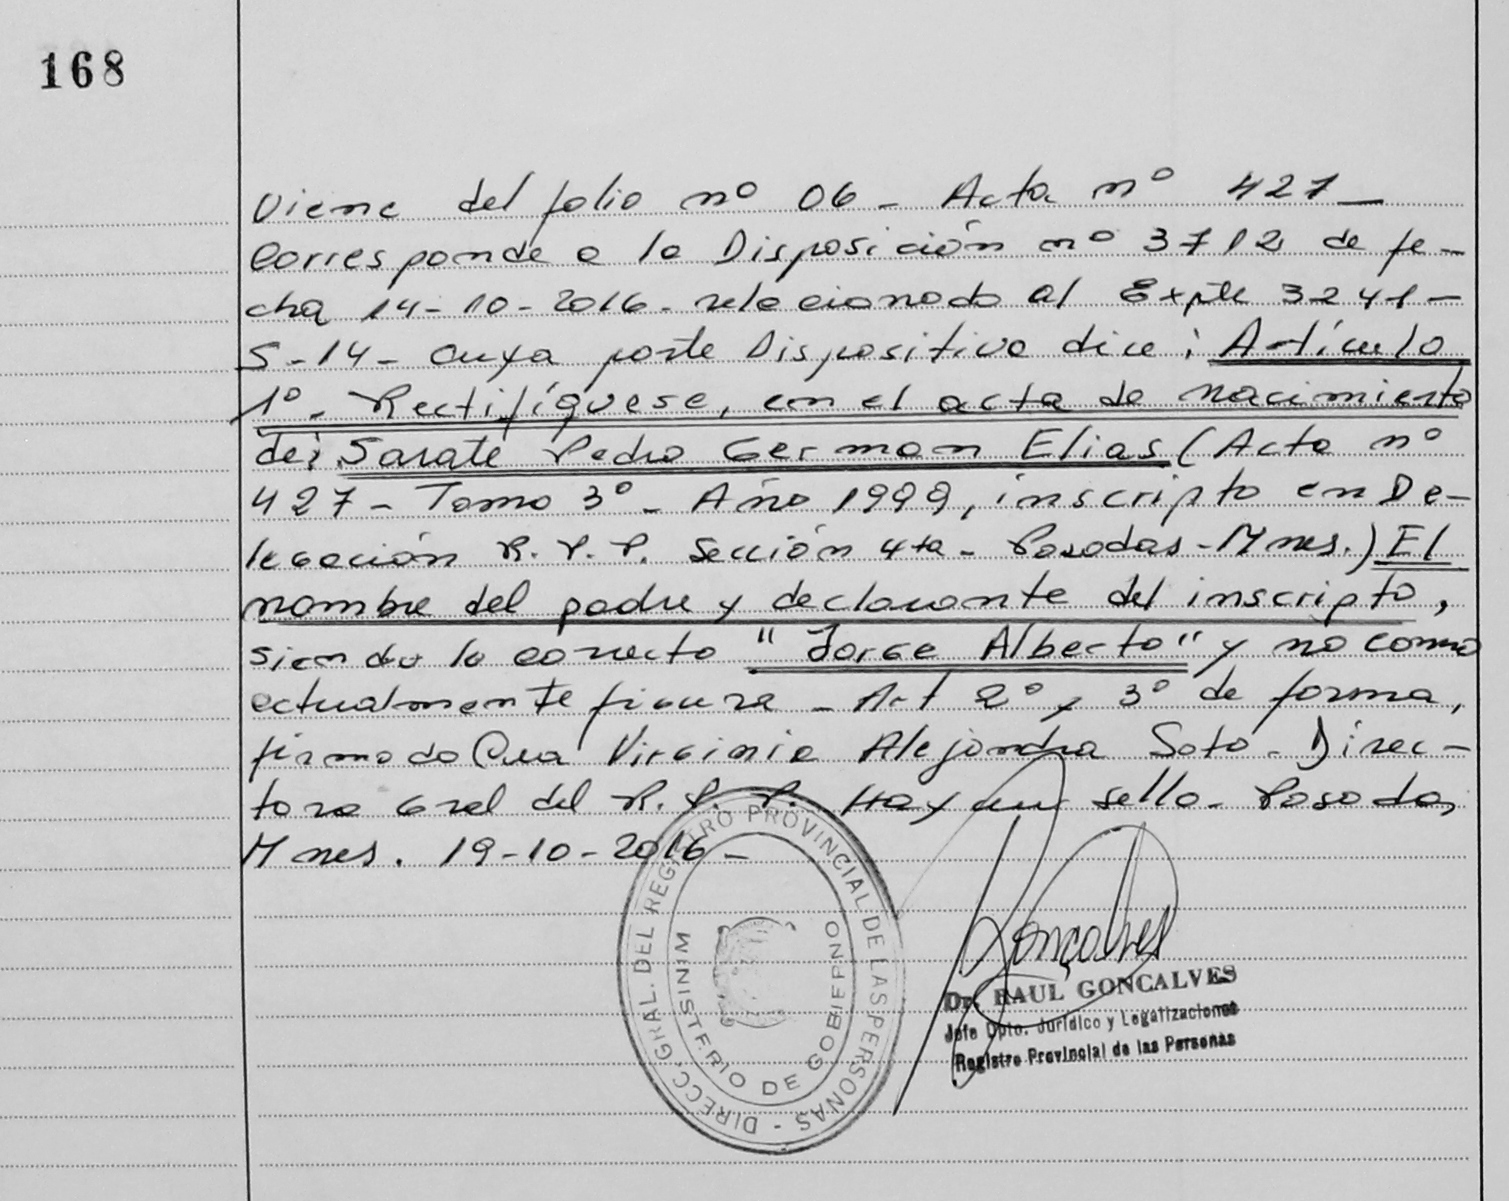 168
Viene del folio nº 06 - Acta nº 427 -
Corresponde a la Disposición nº 3712 de fe-
cha 14-10-2016- relacionado al Expte 3241-
S-14- cuya parte Dispositiva dice: Artículo
1º- Rectifíquese, en el acta de nacimiento
de: Sarate Pedro German Elias (Acta nº
427- Tomo 3º- Año 1999, inscripto en De-
legación R.P.P. Sección 4ta- Posadas-Mnes.) El
nombre del padre y declarante del inscripto,
siendo lo correcto "Jorge Alberto" y no como
actualmente figura - Art 2º y 3º de forma,
firmado Virginia Alejandra Soto- Direc-
tora Gral del R.P.P. Hay un sello- Posadas,
Mnes. 19-10-2016-
DIRECC. GRAL. DEL REGISTRO PROVINCIAL DE LAS PERSONAS -
MINISTERIO DE GOBIERNO
Gonçalves
Dr. RAUL GONCALVES
Jefe Dpto. Jurídico y Legalizaciones
Registro Provincial de las Personas